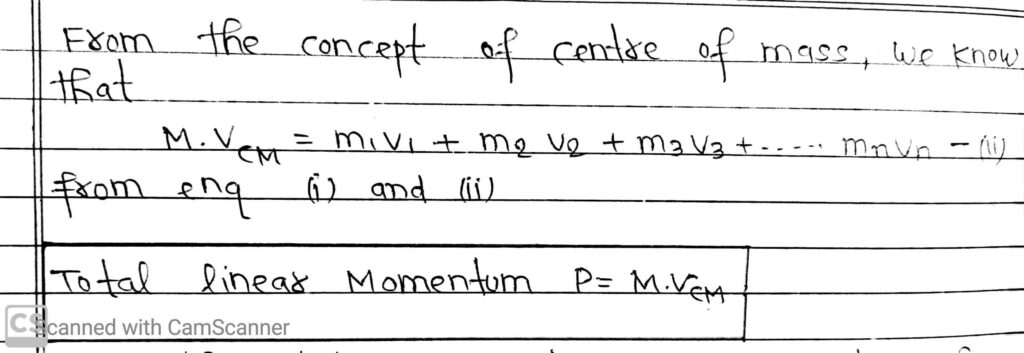 From the concept of centre of mass, we know
that
M.V_CM = m1v1 + m2 v2 + m3v3 +...... mnvn - (ii)
from enq (i) and (ii)
Total linear Momentum P= M.V_CM
CS canned with CamScanner